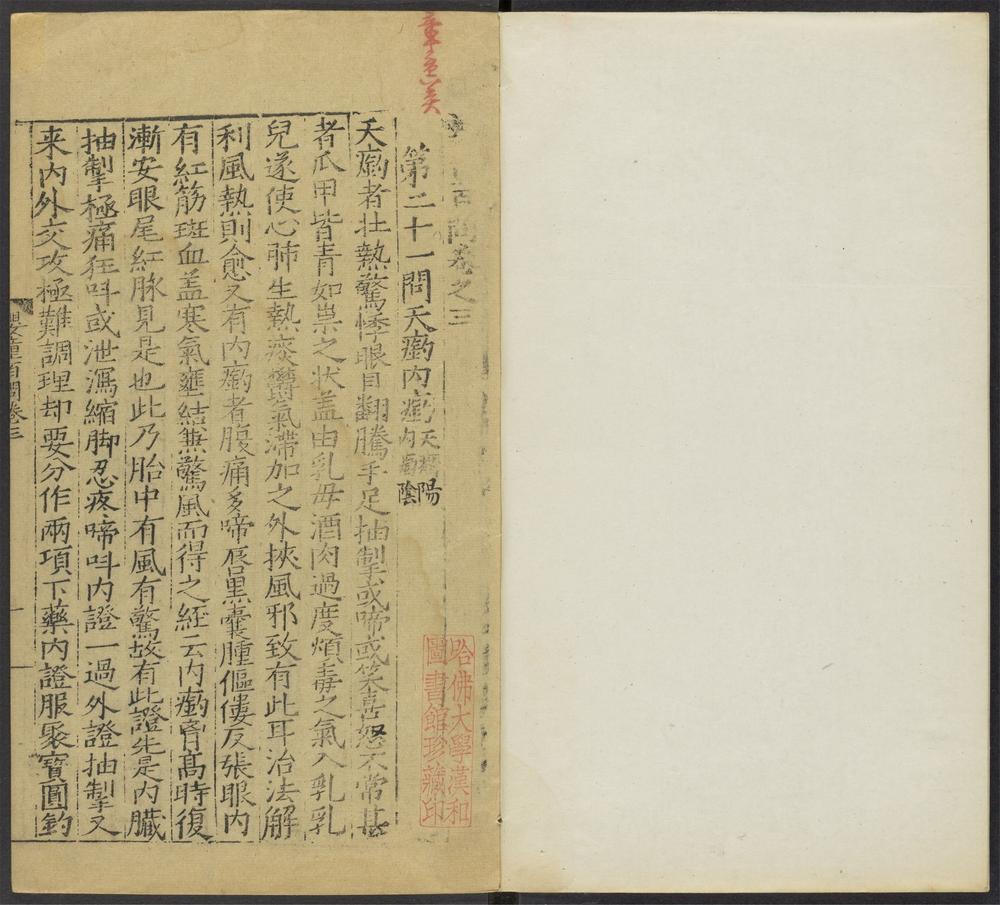 問卷之三
第二十一問天瘹內瘹天瘹陽內瘹陰
天瘹者壯熱驚悸眼目翻騰手足抽掣或啼或笑喜怒不常甚
者爪甲皆青如祟之狀盖由乳母酒肉過度煩毒之氣入乳乳
兒遂使心肺生熱痰鬱氣滯加之外挾風邪致有此耳治法解
利風熱則愈又有內瘹者腹痛多啼唇黑囊腫傴僂反張眼內
有紅筋斑血盖寒氣壅結兼驚風而得之經云內瘹胷高時復
漸安眼尾紅脉見是也此乃胎中有風有驚故有此證先是內臟
抽掣極痛狂呌或泄瀉縮脚忍疼啼呌內證一過外證抽掣又
来內外交攻極難調理却要分作兩項下藥內證服聚寶圓釣
嬰童百問卷三
一
哈佛大學漢和
圖書館珍藏印